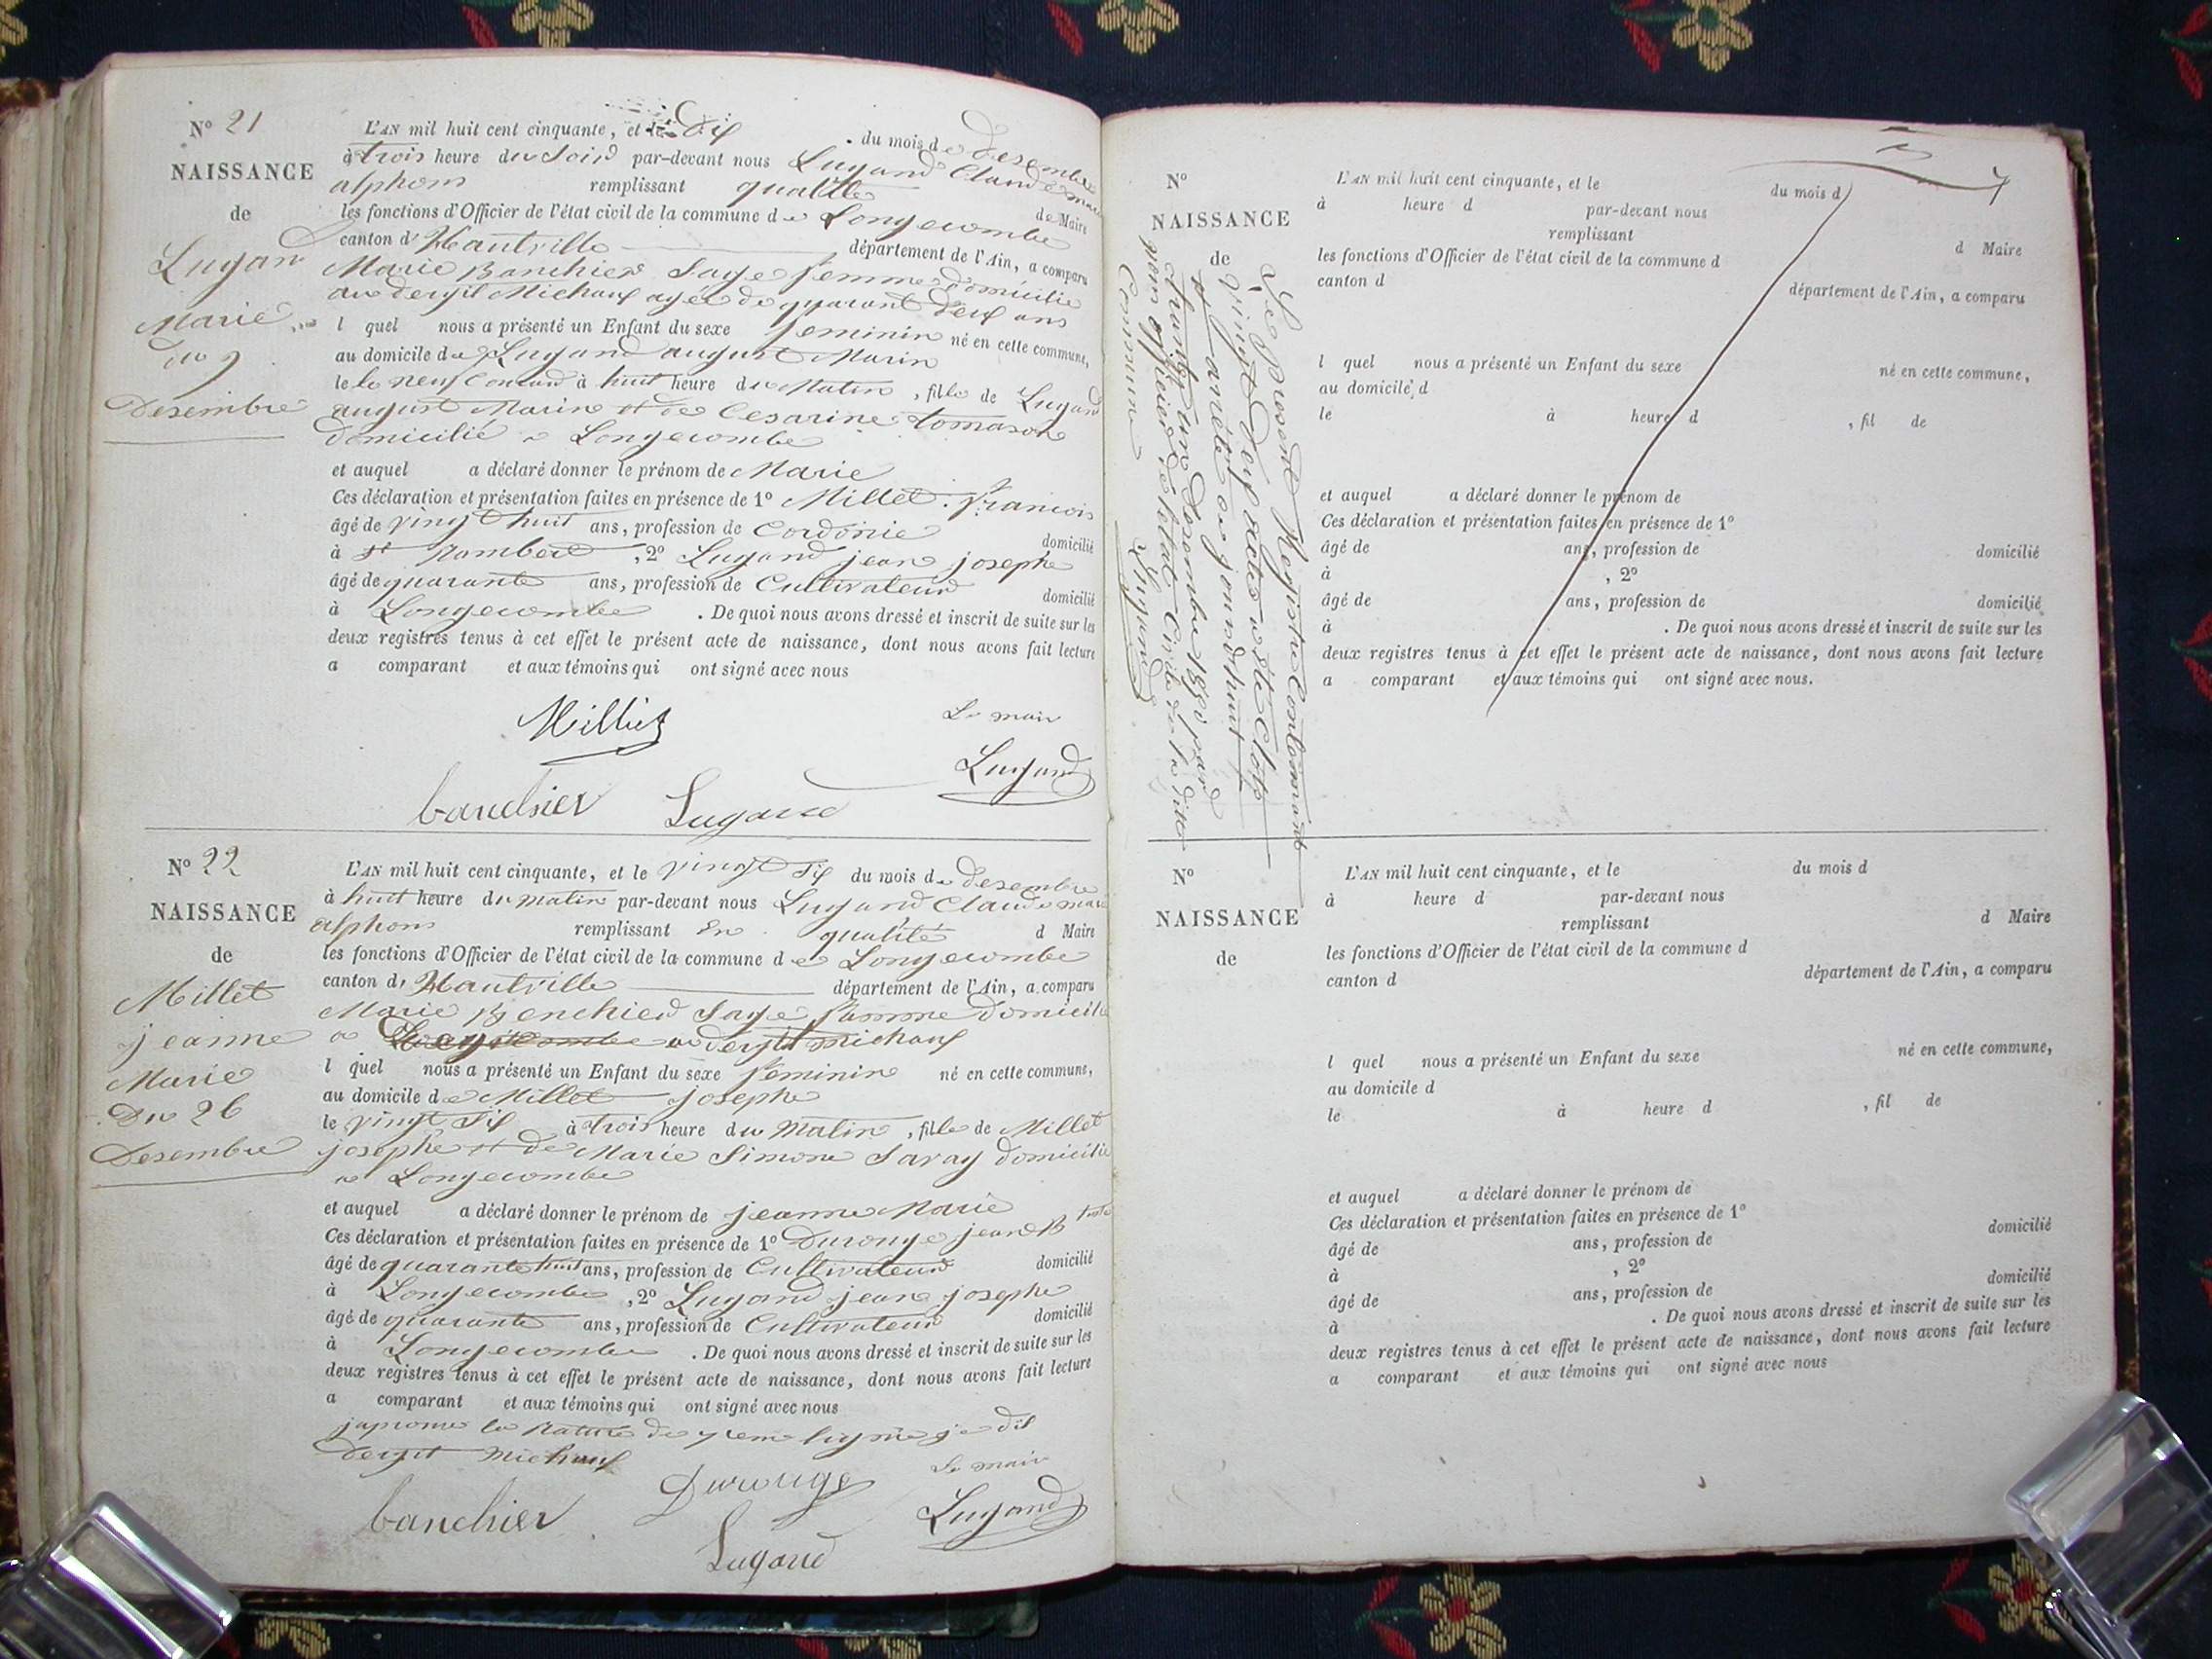 N° 21
NAISSANCE
de
Lugan
Marie
du 9
Desembre
L'AN mil huit cent cinquante, et le Dix du mois de Desembre
à trois heure du Soir par-devant nous Lugand Claude marie
alphons remplissant qualité de Maire
les fonctions d'Officier de l'état civil de la commune de Longecombe
canton d'Hautville département de l'Ain, a comparu
Marie Banchier Sage femme domicilie
au dergit Michaux agée de quarant deux ans
l quel nous a présenté un Enfant du sexe feminin né en cette commune,
au domicile de Lugand august Marin
le le neuf Courand à huit heure du Matin, fille de Lugand
august Marin et de Cesarine tomason
domicilié a Longecombe
et auquel a déclaré donner le prénom de Marie
Ces déclaration et présentation faites en présence de 1° Millet francois
âgé de vingt huit ans, profession de Cordonie domicilié
à st Rambert, 2° Lugand jean josephe
âgé de quarante ans, profession de Cultivateur domicilié
à Longecombe. De quoi nous avons dressé et inscrit de suite sur les
deux registres tenus à cet effet le présent acte de naissance, dont nous avons fait lecture
a comparant et aux témoins qui ont signé avec nous
Milliet
Le mair
Lugand
banchier Lugand
N° 22
NAISSANCE
de
Millet
jeanne
Marie
Du 26
Desembre
L'AN mil huit cent cinquante, et le vingt Six du mois de Desembre
à huit heure du matin par-devant nous Lugand Claude marie
alphons remplissant En qualité d Maire
les fonctions d'Officier de l'état civil de la commune de Longecombe
canton d'Hautville département de l'Ain, a comparu
Marie Benchier Sage famme domicilie
a Longecombe au dergit michaux
l quel nous a présenté un Enfant du sexe feminin né en cette commune,
au domicile de Millet josephe
le vingt Six à trois heure du Matin, fille de Millet
josephe et de Marie Simone Savay domicilie
a Longecombe
et auquel a déclaré donner le prénom de jeanne Marie
Ces déclaration et présentation faites en présence de 1° Durouge jean B
âgé de quarante huit ans, profession de Cultivateur domicilié
à Longecombe, 2° Lugand jean josephe
âgé de quarante ans, profession de Cultivateur domicilié
à Longecombe. De quoi nous avons dressé et inscrit de suite sur les
deux registres tenus à cet effet le présent acte de naissance, dont nous avons fait lecture
a comparant et aux témoins qui ont signé avec nous
japrouve la Rature de 7 eme ligne je dit
dergit michaux
Durouge
Le mair
banchier Lugand
Lugand
N°
NAISSANCE
de
Le present Registre Contenant
vingt Deux actes a été Clote
et arrété ce jourdhuit
trante un Desembre 1850 par
nous officier de l'état Civile de la dite
Commune Lugand
L'AN mil huit cent cinquante, et le du mois d
à heure d par-devant nous
remplissant d Maire
les fonctions d'Officier de l'état civil de la commune d
canton d département de l'Ain, a comparu
l quel nous a présenté un Enfant du sexe né en cette commune,
au domicile d
le à heure d , fil de
et auquel a déclaré donner le prénom de
Ces déclaration et présentation faites en présence de 1°
âgé de ans, profession de domicilié
à , 2°
âgé de ans, profession de domicilié
à . De quoi nous avons dressé et inscrit de suite sur les
deux registres tenus à cet effet le présent acte de naissance, dont nous avons fait lecture
a comparant et aux témoins qui ont signé avec nous.
N°
NAISSANCE
de
L'AN mil huit cent cinquante, et le du mois d
à heure d par-devant nous
remplissant d Maire
les fonctions d'Officier de l'état civil de la commune d
canton d département de l'Ain, a comparu
l quel nous a présenté un Enfant du sexe né en cette commune,
au domicile d
le à heure d , fil de
et auquel a déclaré donner le prénom de
Ces déclaration et présentation faites en présence de 1°
âgé de ans, profession de domicilié
à , 2°
âgé de ans, profession de domicilié
à . De quoi nous avons dressé et inscrit de suite sur les
deux registres tenus à cet effet le présent acte de naissance, dont nous avons fait lecture
a comparant et aux témoins qui ont signé avec nous